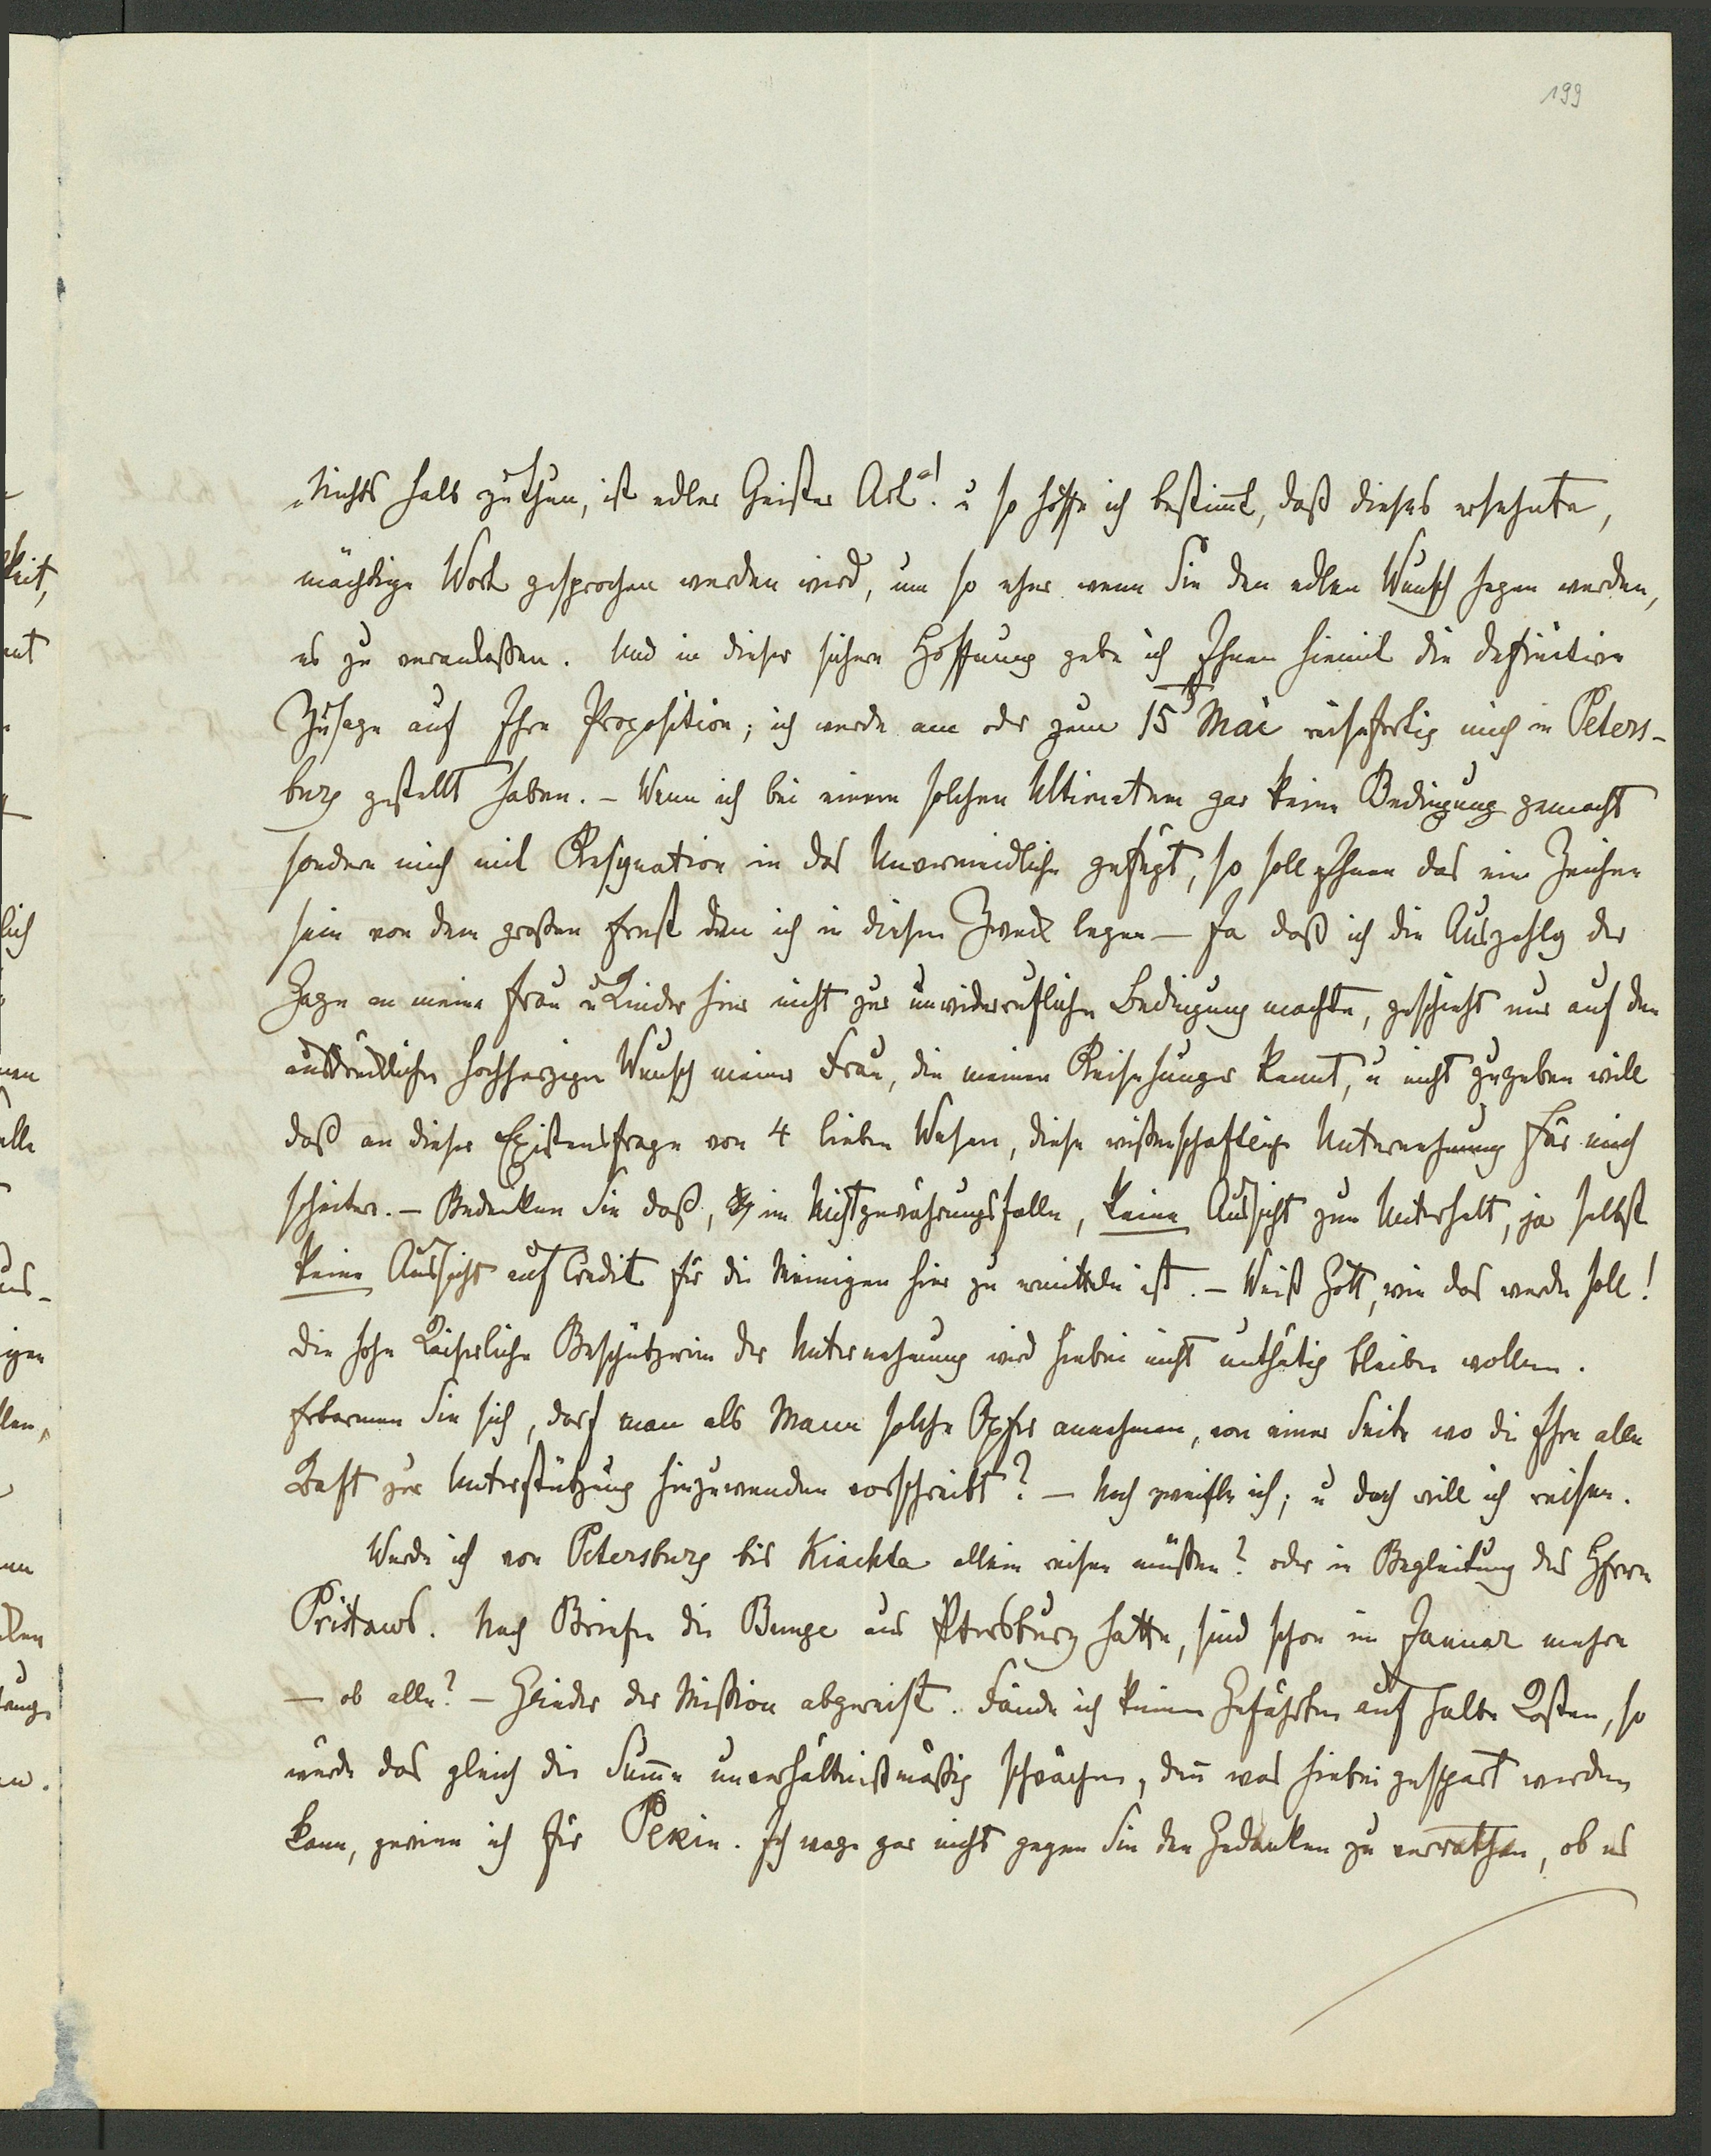 199
„Nichts halb zu thun, ist edler Geister Art“! u so hoffe ich bestimt, daß dieses ersehnte,
mächtige Wort gesprochen werden wird, um so eher wenn Sie den edlen Wunsch hegen werden,
es zu veranlaßen. Und in dieser sichern Hoffnung gebe ich Ihnen hiemit die definitive
Zusage auf Ihre Proposition; ich werde am oder zum 15t Mai reisefertig mich in Peters-
burg gestellt haben. – Wenn ich bei einem solchen Ultimatum gar keine Bedingung gemacht
sondern mich mit Resignation in das Unvermeidliche gefügt, so soll Ihnen das ein Zeichen
sein von dem großen Ernst den ich in diesen Zweck legen – Ja daß ich die Auszahlg der
Gage an meine Frau u Kinder hier nicht zur unwiderruflichen Bedingung machte, geschieht nur auf den
ausdrücklichen hochherzigen Wunsch meiner Frau, die meinen Reisehunger kennt, u nicht zugeben will
daß an dieser Existensfrage von 4 lieben Wesen, diese wißenschaftliche Unternehmung für mich
scheitere. – Bedenken Sie daß, im Nichtgewährungsfalle, keine Aussicht zum Unterhalt, ja selbst
keine Aussicht auf Credit für die Meinigen hier zu ermitteln ist. – Weiß Gott, wie das werden soll!
Die hohe Kaiserliche Beschützerin der Unternehmung wird hiebei nicht unthätig bleiben wollen.
Erbarmen Sie sich, darf man als Mann solche Opfer annehmen, von einer Seite wo die Ehre alle
Kraft zur Unterstützung hinzuwenden vorschreibt? – Noch zweifle ich; u doch will ich reisen.
Werde ich von Petersburg bis Kiachta allein reisen müßen? oder in Begleitung des Herrn
Pristaws. Nach Briefen die Bunge aus Ptersburg hatte, sind schon im Januar mehre
– ob alle? – Glieder der Mission abgereist. Fände ich keinen Gefährten auf halbe Kosten, so
würde das gleich die Summe unverhältnißmäßig schwächen, denn was hiebei gespart werden
kann, gewinn ich für Pekin. Ich wage gar nicht gegen Sie den Gedanken zu verrathen, ob es